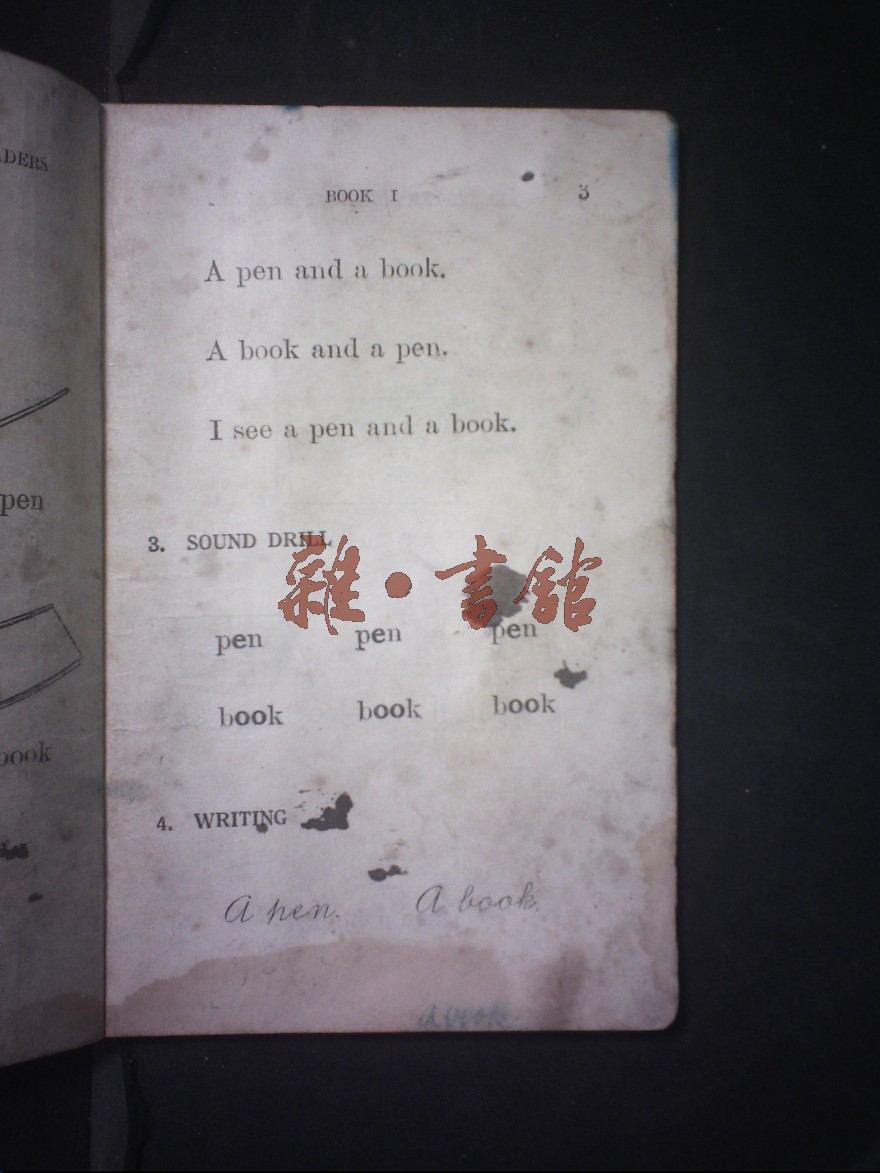 ADERS
pen
book
BOOK I 3
A pen and a book.
A book and a pen.
I see a pen and a book.
3. SOUND DRILL
雜·書館
pen pen pen
book book book
4. WRITING
A pen. A book.
A book